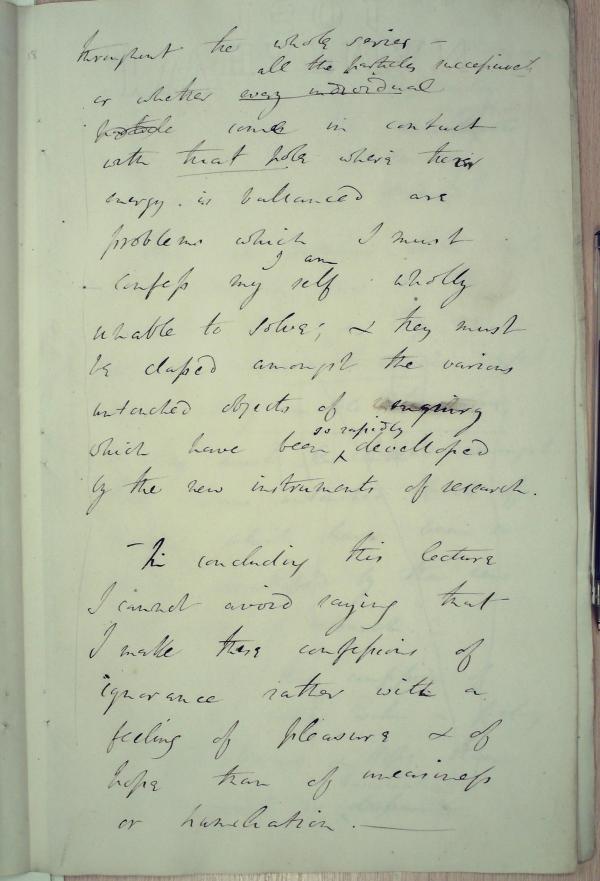 throughout the whole series –
all the particles successively
or whether every individual
particle comes in contact
with that pole where their
energy. is ballanced are
problems which I must
I am
– confess my self wholly
unable to solve; & they must
be classed amongst the various
untouched objects of enquiry
so rapidly
which have been developed
by the new instruments of research.
– In concluding this lecture
I cannot avoid saying that
I make these confessions of
ignorance rather with a
feeling of pleasure & of
hope than of uneasiness
or humiliation. —